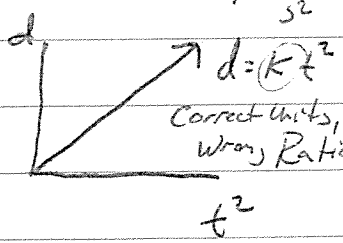 s²
d
d = K t²
Correct units,
Wrong Ratio
t²